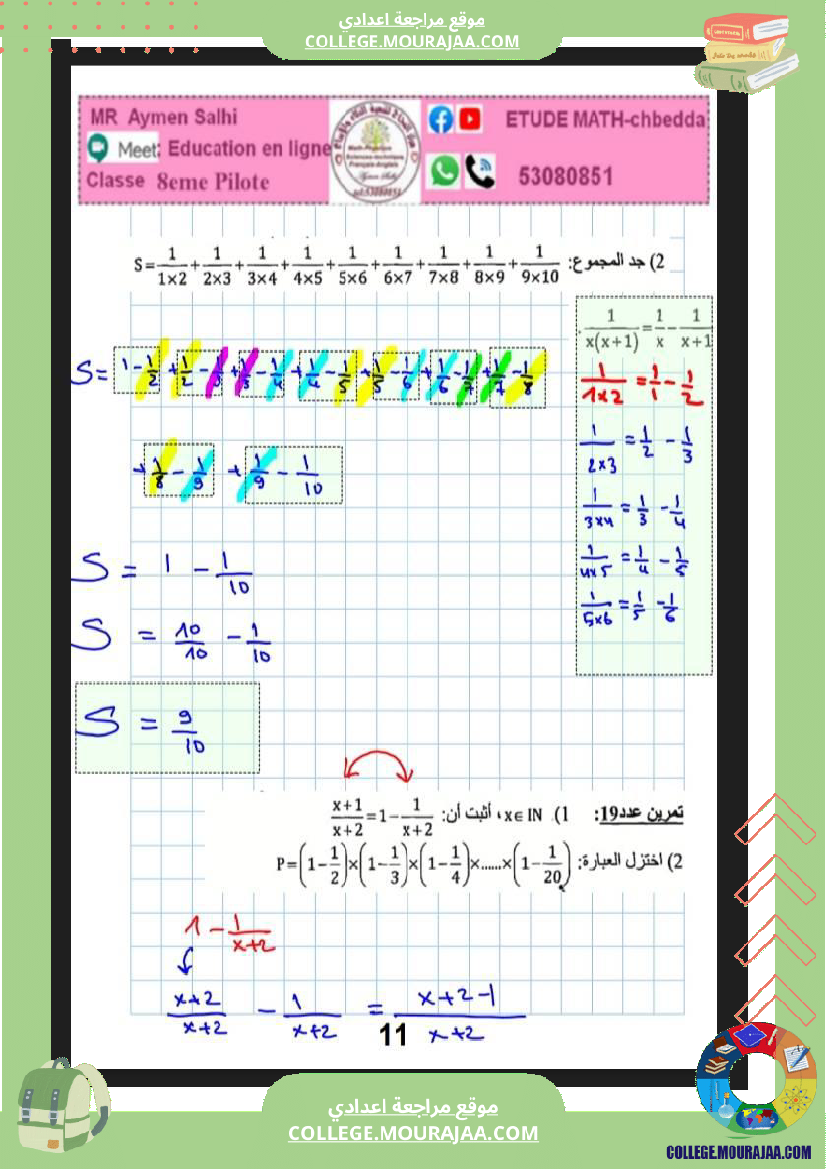 موقع مراجعة اعدادي
COLLEGE.MOURAJAA.COM
MR Aymen Salhi
Meet: Education en ligne
Classe 8eme Pilote
ETUDE MATH-chbedda
53080851
2) جد المجموع: S=1/(1×2)+1/(2×3)+1/(3×4)+1/(4×5)+1/(5×6)+1/(6×7)+1/(7×8)+1/(8×9)+1/(9×10)
S= 1-1/2 +1/2-1/3 +1/3-1/4 +1/4-1/5 +1/5-1/6 +1/6-1/7 +1/7-1/8
+1/8-1/9 +1/9-1/10
S = 1 - 1/10
S = 10/10 - 1/10
S = 9/10
1/(x(x+1)) = 1/x - 1/(x+1)
1/(1×2) = 1/1 - 1/2
1/(2×3) = 1/2 - 1/3
1/(3×4) = 1/3 - 1/4
1/(4×5) = 1/4 - 1/5
1/(5×6) = 1/5 - 1/6
تمرين عدد19: 1). x∈IN، أثبت أن: (x+1)/(x+2)=1-1/(x+2)
2) اختزل العبارة: P=(1-1/2)×(1-1/3)×(1-1/4)×......×(1-1/20)
1 - 1/(x+2)
(x+2)/(x+2) - 1/(x+2) = (x+2-1)/(x+2)
11
موقع مراجعة اعدادي
COLLEGE.MOURAJAA.COM
COLLEGE.MOURAJAA.COM